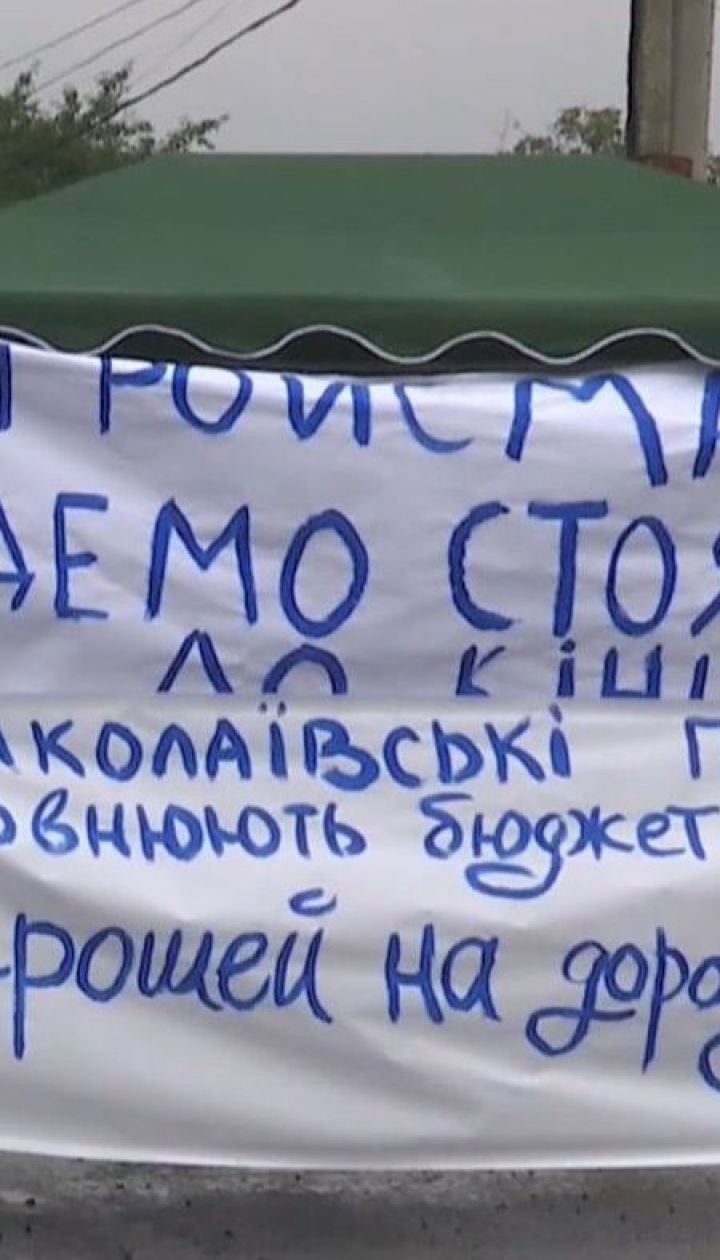 ДЕМО СТОЯ
ДО КІНЦ
КОЛАЇВСЬКІ
ОВНЮЮТЬ бюджет
грошей на доро